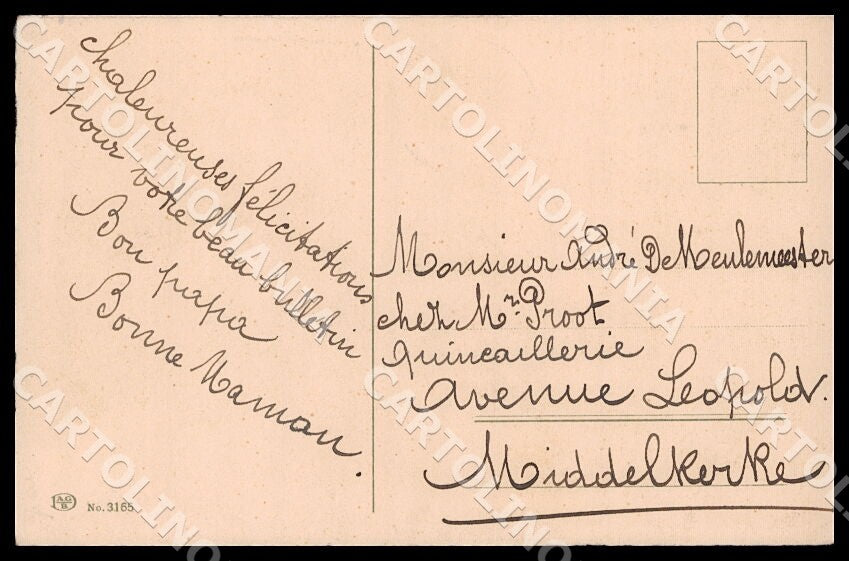 chaleureuses félicitations
pour votre beau bulletin
Bon papa
Bonne Maman.
Monsieur André De Meulemeester
chez Mr. Proot
Quincaillerie
Avenue Leopold.
Middelkerke
AG
B.
No. 3165
CARTOLINOMANIA
CARTOLINOMANIA
CARTOLINOMANIA
CARTOLINOMANIA